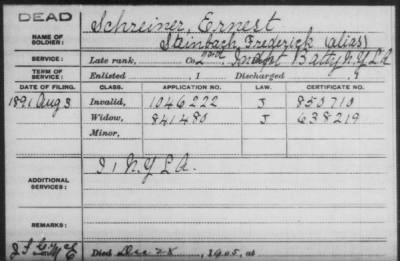 DEAD
Schreiner, Ernest
NAME OF SOLDIER:
Stainbach, Frederick (alias)
SERVICE: Late rank, Co. 2nd Indpt Batty N.Y.L.A
TERM OF SERVICE: Enlisted , 1 Discharged , 1
DATE OF FILING. CLASS. APPLICATION NO. LAW. CERTIFICATE NO.
1891 Aug 3 Invalid, 1046222 J 850710
Widow, 841480 J 638219
Minor,
ADDITIONAL SERVICES: I 1 N.Y.L.A.
REMARKS:
Died Dec 28, 1905, at